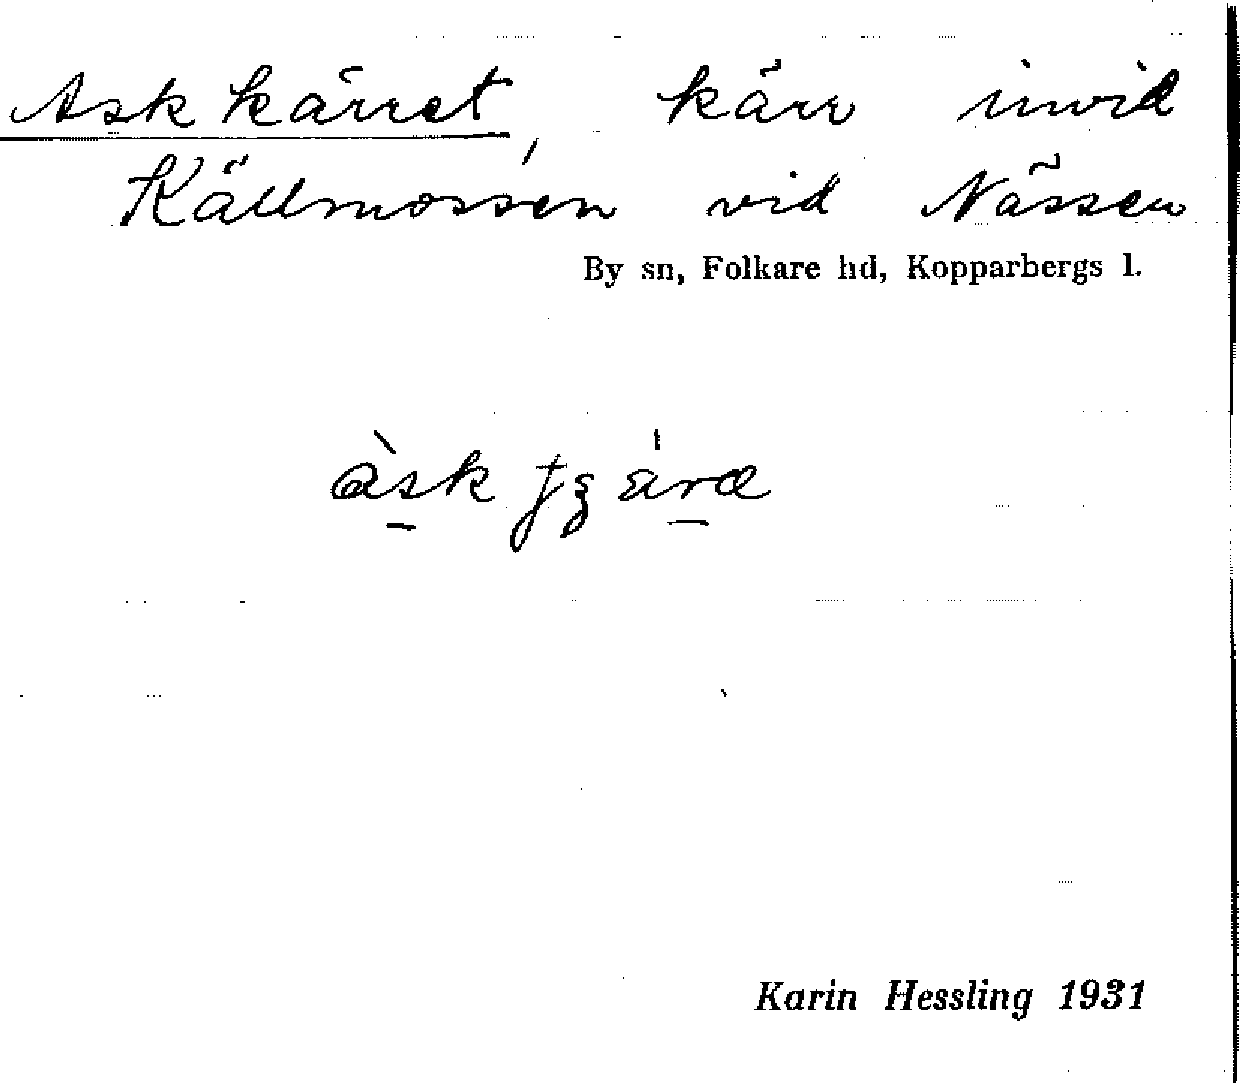 Askkärret, kärr invid
Källmossen vid Nässen
By sn, Folkare hd, Kopparbergs l.
Karin Hessling 1931